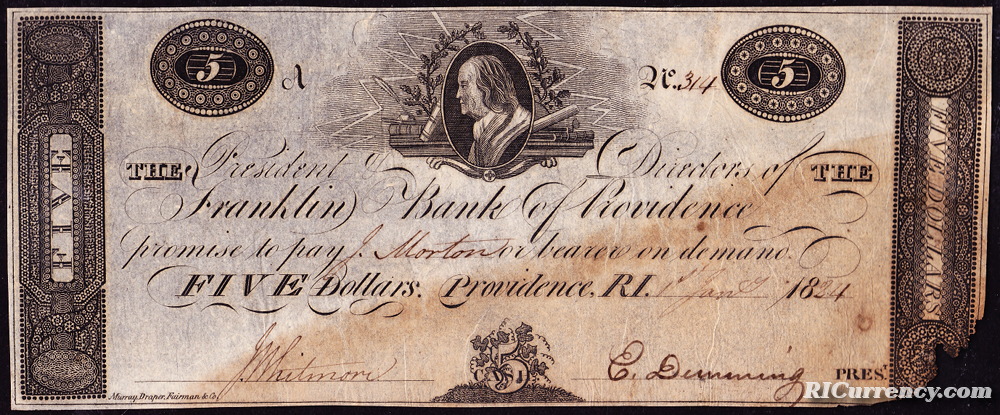 5 A No. 314 5
FIVE
THE President & Directors of THE
Franklin Bank of Providence
promise to pay J. Morton or bearer on demand.
FIVE Dollars. Providence, R.I. 1 Jany 1824
FIVE DOLLARS
5
J. Whitmore E. Dunning PRES.
Murray, Draper, Fairman & Co.
RICurrency.com